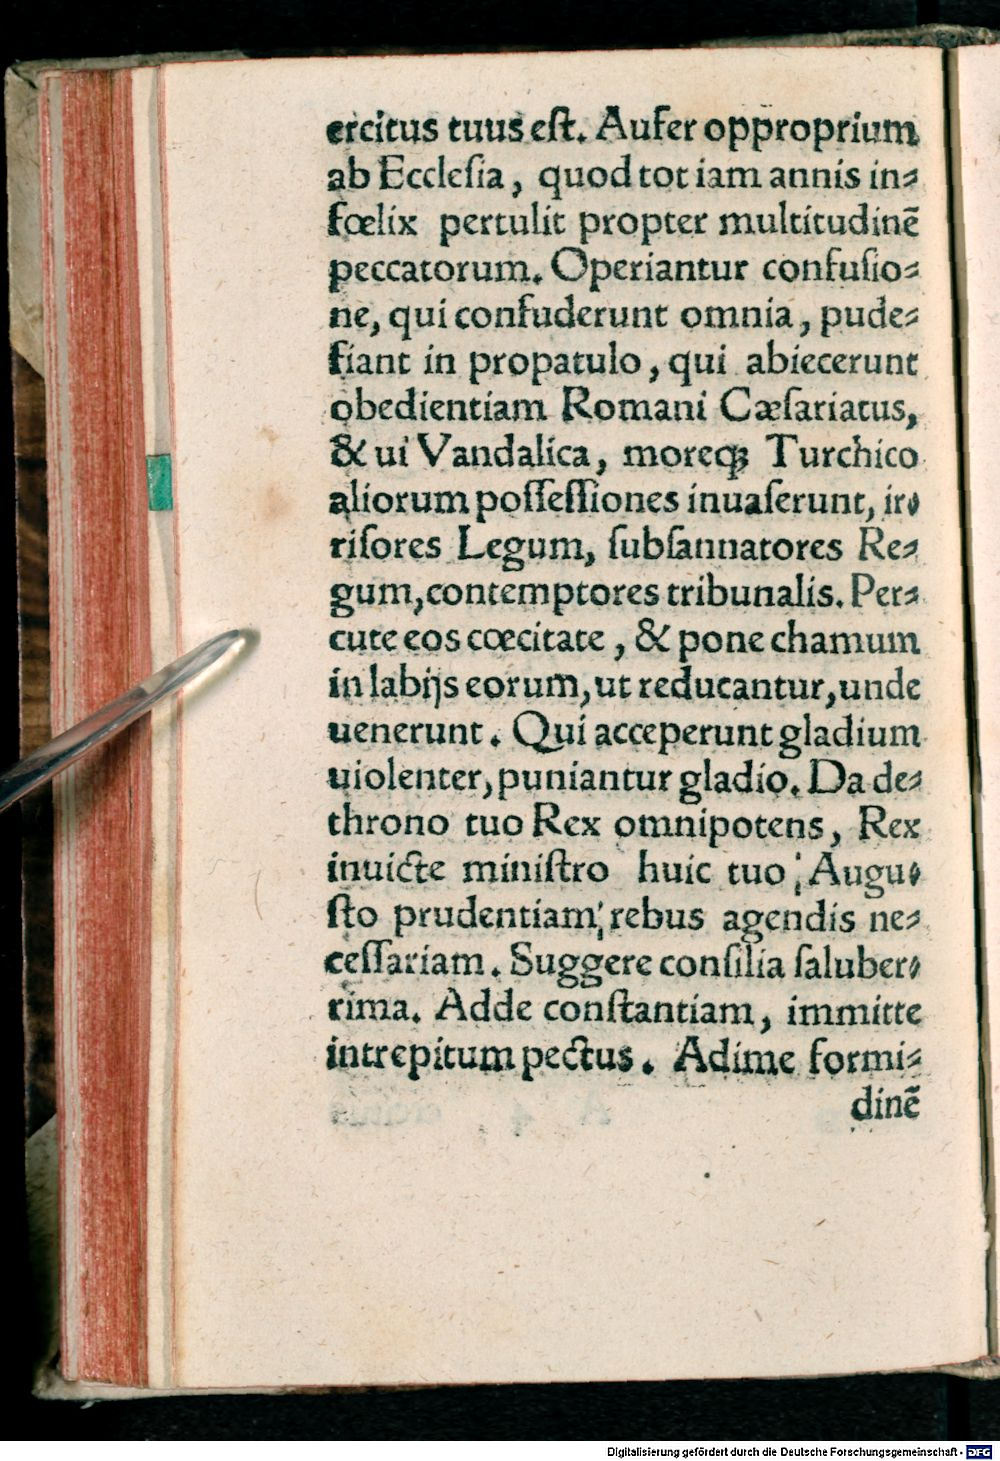 ercitus tuus eſt. Aufer opproprium
ab Eccleſia, quod tot iam annis in⸗
fœlix pertulit propter multitudinē
peccatorum. Operiantur confuſio⸗
ne, qui confuderunt omnia, pude⸗
fiant in propatulo, qui abiecerunt
obedientiam Romani Cæſariatus,
& ui Vandalica, moreq́ꝫ Turchico
aliorum poſſeſſiones inuaſerunt, ir⸗
riſores Legum, ſubſannatores Re⸗
gum, contemptores tribunalis. Per⸗
cute eos cœcitate, & pone chamum
in labijs eorum, ut reducantur, unde
uenerunt. Qui acceperunt gladium
uiolenter, puniantur gladio. Da de⸗
throno tuo Rex omnipotens, Rex
inuicte miniſtro huic tuo, Augu⸗
ſto prudentiam, rebus agendis ne⸗
ceſſariam. Suggere conſilia ſaluber⸗
rima. Adde conſtantiam, immitte
intrepitum pectus. Adime formi⸗
dinē
Digitalisierung gefördert durch die Deutsche Forschungsgemeinschaft - DFG